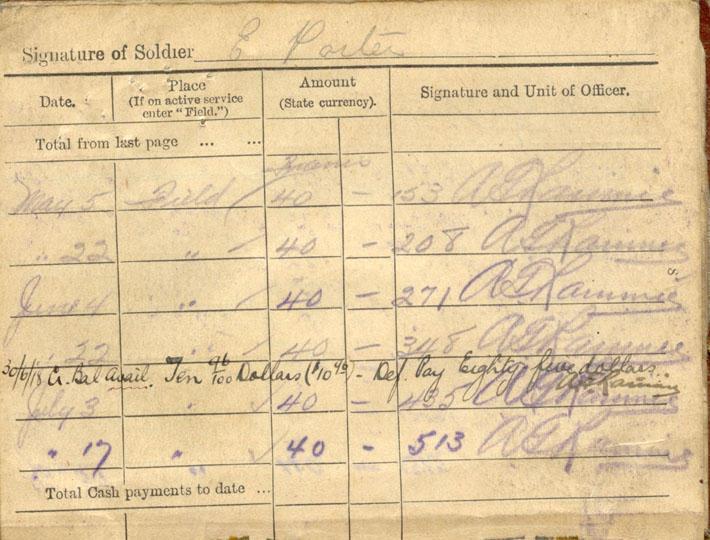 Signature of Soldier E Porter
Date. Place (If on active service enter "Field.") Amount (State currency). Signature and Unit of Officer.
Total from last page ... ...
Francs
May 5 Field 40 – 153
„ 22 „ 40 – 208
June 4 „ 40 – 271
„ 22 „ 40 – 348
30/6/18 Cr. Bal Avail. Ten 96/100 Dollars ($10.96) – Def. Pay Eighty five dollars.
July 3 „ 40 – 435
„ 17 „ 40 – 513
Total Cash payments to date ...